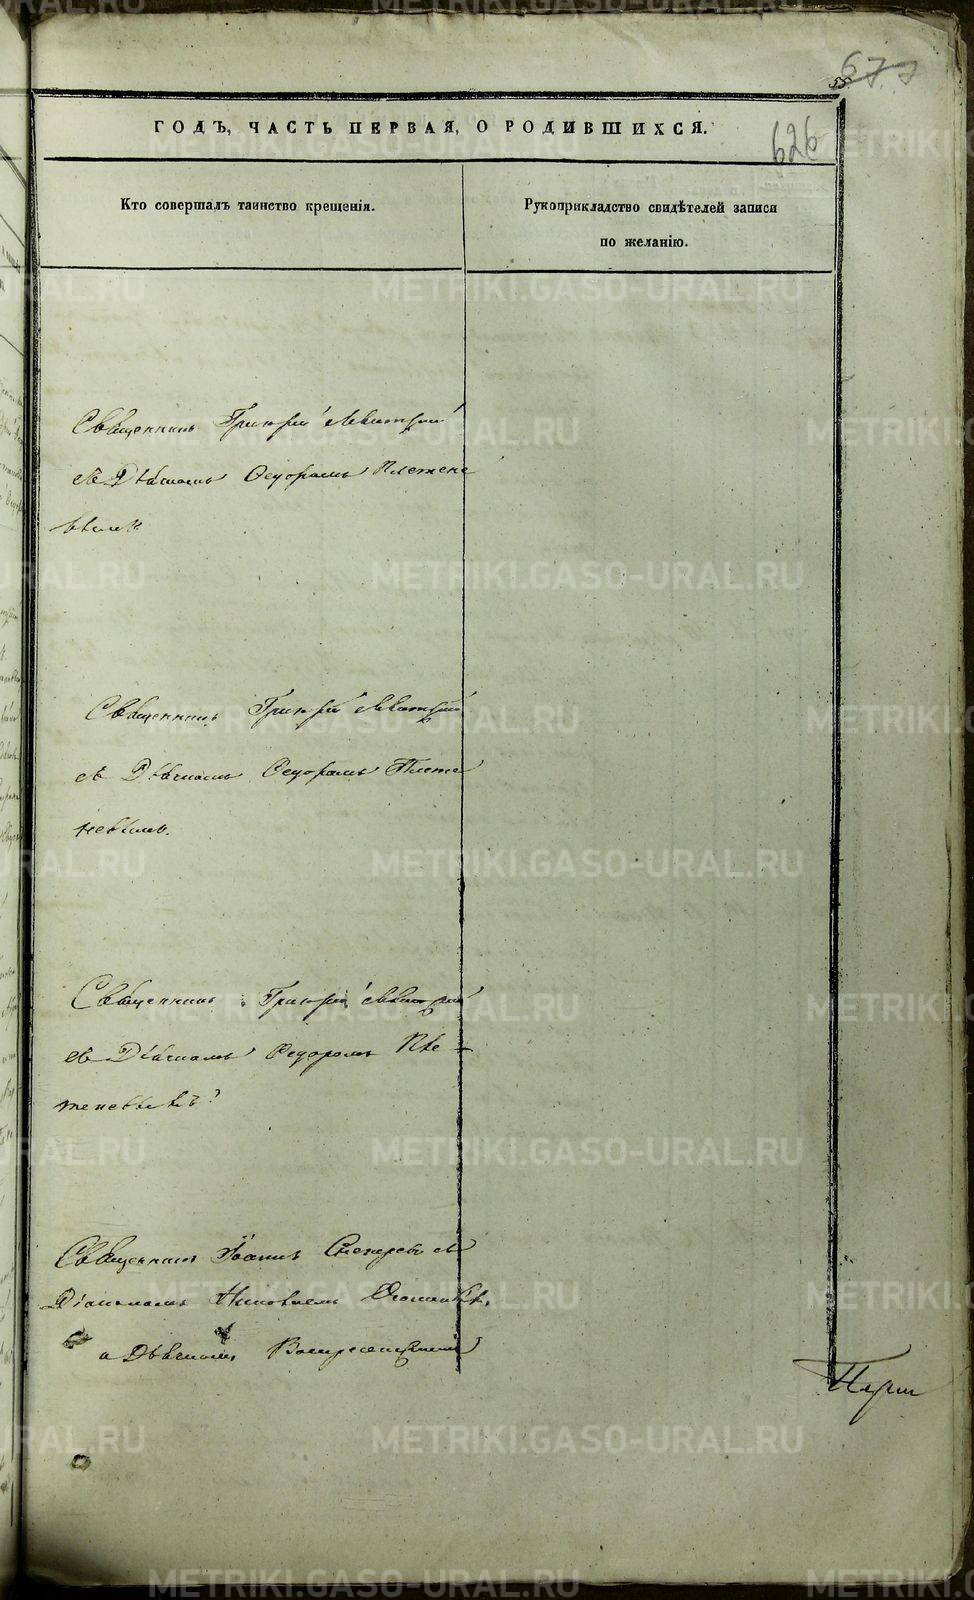 677
626
ГОДЪ, ЧАСТЬ ПЕРВАЯ, О РОДИВШИХСЯ.
Кто совершалъ таинство крещенія.
Рукоприкладство свидѣтелей записи
по желанію.
Священникъ Григорій Левитскій
съ Дьячкомъ Ѳедоромъ Плетене
вымъ
Священникъ Григорій Левитскій
съ Дьячкомъ Ѳедоромъ Плете
невымъ.
Священникъ Григорій Левитскій
съ Дьячкомъ Ѳедоромъ Пле-
теневымъ
Священникъ Іоаннъ съ
Діакономъ
и Дьячкомъ Воскресенскимъ
METRIKI.GASO-URAL.RU